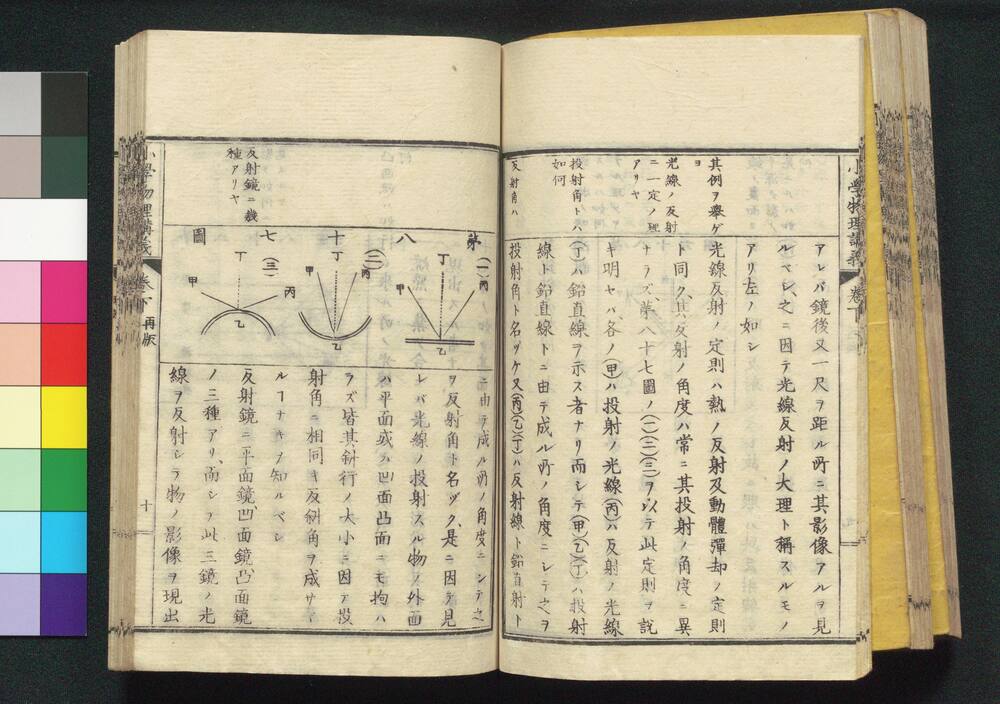 小學物理講義
卷下
其例ヲ擧ゲヨ
光線ノ反射ニ一定ノ理アリヤ
投射角トハ如何
反射角ハ
アレバ鏡後又一尺ヲ距ル所ニ其影像アルヲ見
ルベシ之ニ因テ光線反射ノ大理ト稱スルモノ
アリ左ノ如シ
光線反射ノ定則ハ熱ノ反射及動體彈却ノ定則
ト同ク其反射ノ角度ハ常ニ其投射ノ角度ニ異
ナラズ第八十七圖ノ(一)(二)(三)ヲ以テ此定則ヲ說
キ明サバ各ノ(甲)ハ投射ノ光線(丙)ハ反射ノ光線
(丁)ハ鉛直線ヲ示ス者ナリ而シテ(甲)(乙)(丁)ハ投射
線ト鉛直線トニ由テ成ル所ノ角度ニシテ之ヲ
投射角ト名ヅケ又(丙)(乙)(丁)ハ反射線ト鉛直射ト
反射鏡ニ幾種アリヤ
第八十七圖
(一)
丁
丙
甲
乙
(二)
丁
丙
甲
乙
(三)
丁
丙
甲
乙
ニ由テ成ル所ノ角度ニシテ之
ヲ反射角ト名ヅク是ニ因テ見
レバ光線ノ投射スル物ノ外面
ハ平面或ハ凹面凸面ニモ拘ハ
ラズ皆其斜行ノ大小ニ因テ投
射角ニ相同キ反斜角ヲ成サヾ
ルヿナキヲ知ルベシ
反射鏡ニ平面鏡凹面鏡凸面鏡
ノ三種アリ而シテ此三鏡ノ光
線ヲ反射シテ物ノ影像ヲ現出
小學物理講義
卷下
再版
十